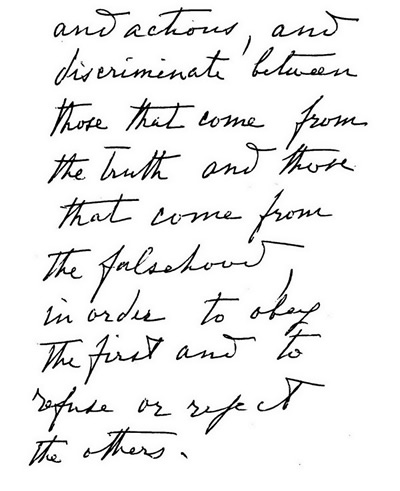 and actions, and
discriminate between
those that come from
the truth and those
that come from
the falsehood,
in order to obey
the first and to
refuse or reject
the others.